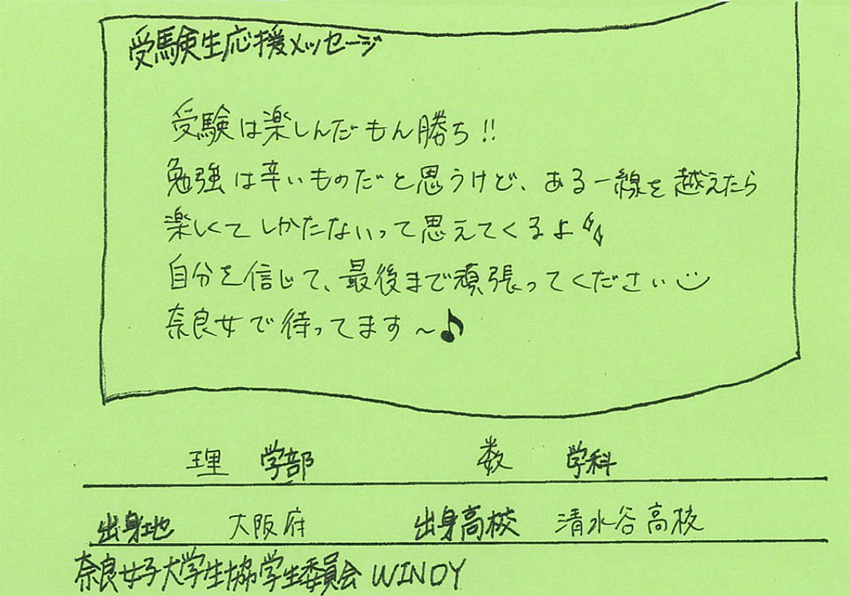 受験生応援メッセージ
受験は楽しんだもん勝ち!!
勉強は辛いものだと思うけど、ある一線を越えたら
楽しくてしかたないって思えてくるよ
自分を信じて、最後まで頑張ってください
奈良女で待ってます～♪
理 学部 数 学科
出身地 大阪府 出身高校 清水谷高校
奈良女子大学生協学生委員会 WINDY